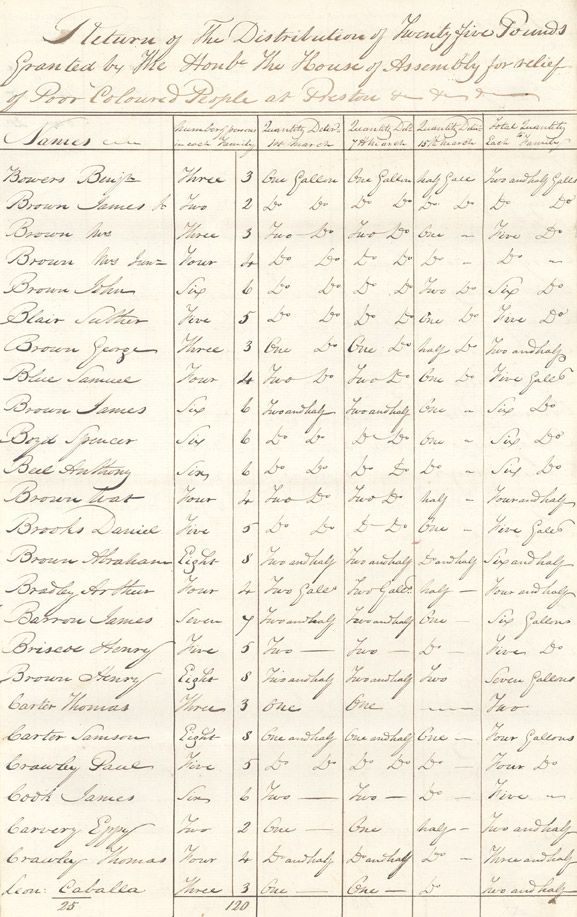 Return of The Distribution of Twenty five Pounds
Granted by The Honble The House of Assembly for relief
of Poor Coloured People at Preston & & &
Names Number of persons in each Family Quantity Deld 1st March Quantity Deld 7th March Quantity Deld 15th March Total Quantity Each Family
Bowers Three 3 One Gallon One Gallon half Gall Two and half Galls
Brown James Two 2 Do Do Do Do Do Do Do Do
Brown Mrs Three 3 Two Do Two Do One " Five Do
Brown Mrs Junr Four 4 Do Do Do Do Do " Do "
Brown John Six 6 Do Do Do Do Two Do Six Do
Blair Suther Five 5 Do Do Do Do One Do Five Do
Brown George Three 3 One Do One Do half Do Two and half
Blue Samuel Four 4 Two Do Two Do One Do Five Galls
Brown James Six 6 Two and half Two and half One " Six Do
Boyd Spencer Six 6 Do Do Do Do One " Six Do
Bell Anthony Six 6 Do Do Do Do Do " Six Do
Brown Wat Four 4 Two Do Two Do half " Four and half
Brooks Daniel Five 5 Do Do Do Do One " Five Galls
Brown Abraham Eight 8 Two and half Two and half Do and half Six and half
Bradley Arthur Four 4 Two Galls Two Galls half — Four and half
Barron James Seven 7 Two and half Two and half One — Six Gallons
Briscoe Henry Five 5 Two — Two — Do — Five Do
Brown Henry Eight 8 Two and half Two and half Two Seven Gallons
Carter Thomas Three 3 One One — Two
Carter Samson Eight 8 One and half One and half One — Four Gallons
Crawley Paul Five 5 Do Do Do Do Do — Four Do
Cook James Six 6 Two — Two — Do — Five "
Carvery Eppy Two 2 One — One half — Two and half
Crawley Thomas Four 4 Do and half Do and half Do — Three and half
Leon: Caballa Three 3 One — One — Do Two and half
25 120